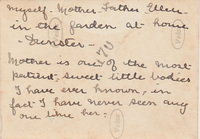 myself - Mother. Father Ellen -
in the garden at home
- Dunster -
Mother is one of the most
patient, sweet little bodies
I have ever known, in
fact I have never seen any
one like her -